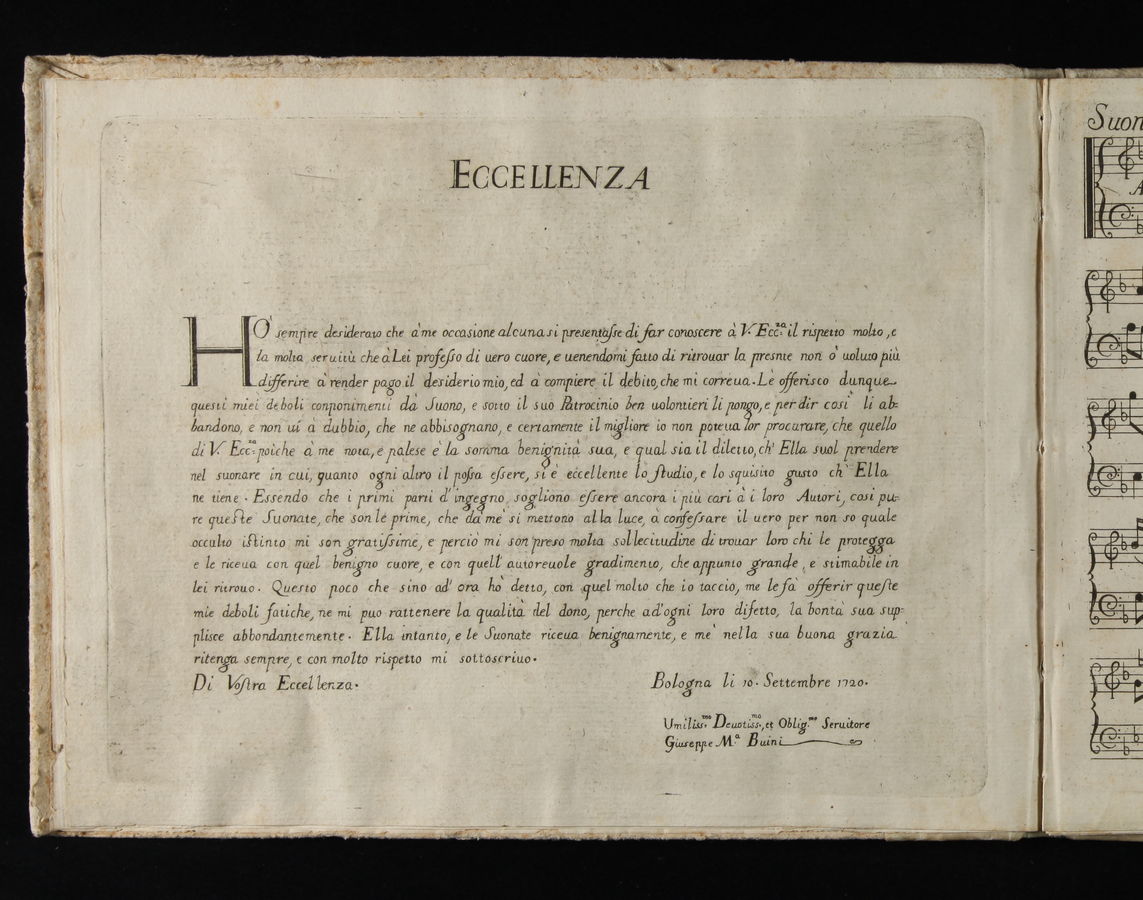 ECCELLENZA
HÒ sempre desiderato che à me occasione alcuna si presentaſse di far conoscere à V. Ecc.za il rispetto molto, e
la molta seruitù che à Lei profeſso di uero cuore, e uenendomi fatto di ritrouar la presnte non ò uoluto più
differire à render pago il desiderio mio, ed à compiere il debito, che mi correua. Le offerisco dunque
questi miei deboli conponimenti dà Suono, e sotto il suo Patrocinio ben uolontieri li pongo, e per dir così li ab=
bandono, e non ui à dubbio, che ne abbisognano, e certamente il migliore io non poteua lor procurare, che quello
di V. Ecc.za poiche à me nota, e palese è la somma benignità sua, e qual sia il diletto, ch' Ella suol prendere
nel suonare in cui, quanto ogni altro il poſsa eſsere, si è eccellente lo ſtudio, e lo squisito gusto ch' Ella
ne tiene. Essendo che i primi parti d'ingegno sogliono eſsere ancora i più cari à i loro Autori, così pu=
re queſte Suonate, che son le prime, che dà me si mettono alla luce, à confeſsare il uero per non so quale
occulto iſtinto mi son gratiſsime, e perciò mi son preso molta sollecitudine di trouar loro chi le protegga
e le riceua con quel benigno cuore, e con quell' autoreuole gradimento, che appunto grande, e stimabile in
lei ritrouo. Questo poco che sino ad' ora hò detto, con quel molto che io taccio, me le fà offerir queſte
mie deboli fatiche, ne mi può rattenere la qualità del dono, perche ad'ogni loro difetto, la bontà sua sup=
plisce abbondantemente. Ella intanto, e le Suonate riceua benignamente, e me nella sua buona grazia
ritenga sempre, e con molto rispetto mi sottoscriuo.
Di Voſtra Eccellenza.
Bologna li 10. Settembre 1720.
Umiliss.mo Deuotiss.mo, et Oblig.mo Seruitore
Giuseppe M.a Buini
Suon
A